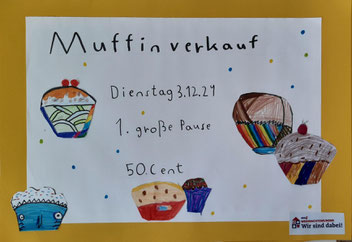 Muffinverkauf
Dienstag 3.12.24
1. große Pause
50 Cent
Wir sind dabei!